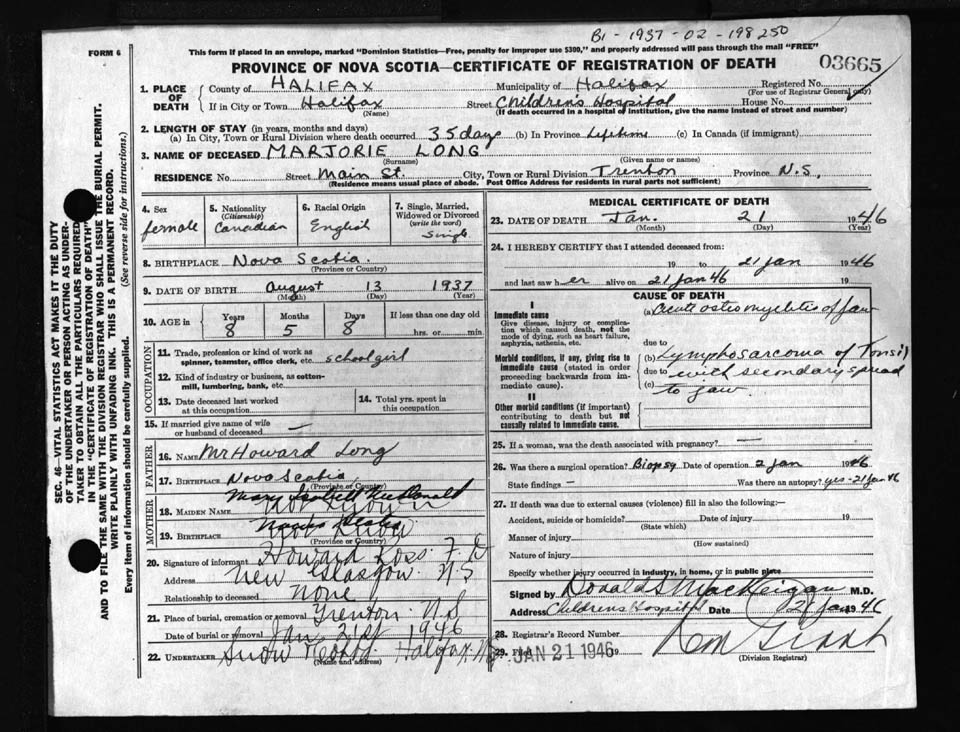 B1 - 1937 - 02 - 198250
FORM 6
This form if placed in an envelope, marked "Dominion Statistics—Free, penalty for improper use $300," and properly addressed will pass through the mail "FREE"
PROVINCE OF NOVA SCOTIA—CERTIFICATE OF REGISTRATION OF DEATH
03665
1. PLACE OF DEATH
County of HALIFAX Municipality of Halifax Registered No.
(For use of Registrar General only)
If in City or Town Halifax Street Children's Hospital House No.
(Name) (If death occurred in a hospital or institution, give the name instead of street and number)
2. LENGTH OF STAY (in years, months and days)
(a) In City, Town or Rural Division where death occurred 35 days (b) In Province Lifetime (c) In Canada (if immigrant)
3. NAME OF DECEASED MARJORIE LONG
(Surname) (Given name or names)
RESIDENCE No. Street Main St. City, Town or Rural Division Trenton Province N.S.,
(Residence means usual place of abode. Post Office Address for residents in rural parts not sufficient)
4. Sex
female
5. Nationality
(Citizenship)
Canadian
6. Racial Origin
English
7. Single, Married, Widowed or Divorced
(write the word)
Single
8. BIRTHPLACE Nova Scotia.
(Province or Country)
9. DATE OF BIRTH August 13 1937
(Month) (Day) (Year)
10. AGE in
Years Months Days If less than one day old
8 5 8 hrs. or min.
OCCUPATION
11. Trade, profession or kind of work as
spinner, teamster, office clerk, etc. schoolgirl
12. Kind of industry or business, as cotton-
mill, lumbering, bank, etc.
13. Date deceased last worked
at this occupation
14. Total yrs. spent in
this occupation
15. If married give name of wife
or husband of deceased —
FATHER
16. Name Mr Howard Long
17. Birthplace Nova Scotia
(Province or Country)
MOTHER
Mary McDonald
18. Maiden Name Not Known
19. Birthplace
(Province or Country)
20. Signature of informant Howard Ross F.D
Address New Glasgow. N.S
Relationship to deceased None
21. Place of burial, cremation or removal Trenton N.S
Date of burial or removal Jan 21st 1946
22. UNDERTAKER Snow Halifax N.S.
(Name and address)
MEDICAL CERTIFICATE OF DEATH
23. DATE OF DEATH Jan. 21 1946
(Month) (Day) (Year)
24. I HEREBY CERTIFY that I attended deceased from:
19 to 21 Jan 1946
and last saw h er alive on 21 Jan 46 19
CAUSE OF DEATH
I
Immediate cause
Give disease, injury or complication which caused death, not the mode of dying, such as heart failure, asphyxia, asthenia, etc.
(a) Acute osteomyelitis of jaw
due to
Morbid conditions, if any, giving rise to immediate cause (stated in order proceeding backwards from immediate cause).
(b) Lymphosarcoma of Tonsil
due to with secondary spread
(c) to jaw.
II
Other morbid conditions (if important) contributing to death but not causally related to immediate cause.
25. If a woman, was the death associated with pregnancy? —
26. Was there a surgical operation? Biopsy Date of operation 2 Jan 1946
State findings — Was there an autopsy? yes - 21 Jan 46
27. If death was due to external causes (violence) fill in also the following:—
Accident, suicide or homicide? Date of injury 19
(State which)
Manner of injury
(How sustained)
Nature of injury
Specify whether injury occurred in industry, in home, or in public place
Signed by Donald S MacKeigan M.D.
Address Childrens Hospital Date 21 Jan 1946
28. Registrar's Record Number
29. Filed JAN 21 1946
(Division Registrar)
SEC. 46—VITAL STATISTICS ACT MAKES IT THE DUTY OF THE UNDERTAKER OR PERSON ACTING AS UNDERTAKER TO OBTAIN ALL THE PARTICULARS REQUIRED IN THE "CERTIFICATE OF REGISTRATION OF DEATH" AND TO FILE THE SAME WITH THE DIVISION REGISTRAR WHO SHALL ISSUE THE BURIAL PERMIT.
WRITE PLAINLY WITH UNFADING INK. THIS IS A PERMANENT RECORD.
Every item of information should be carefully supplied. (See reverse side for instructions.)